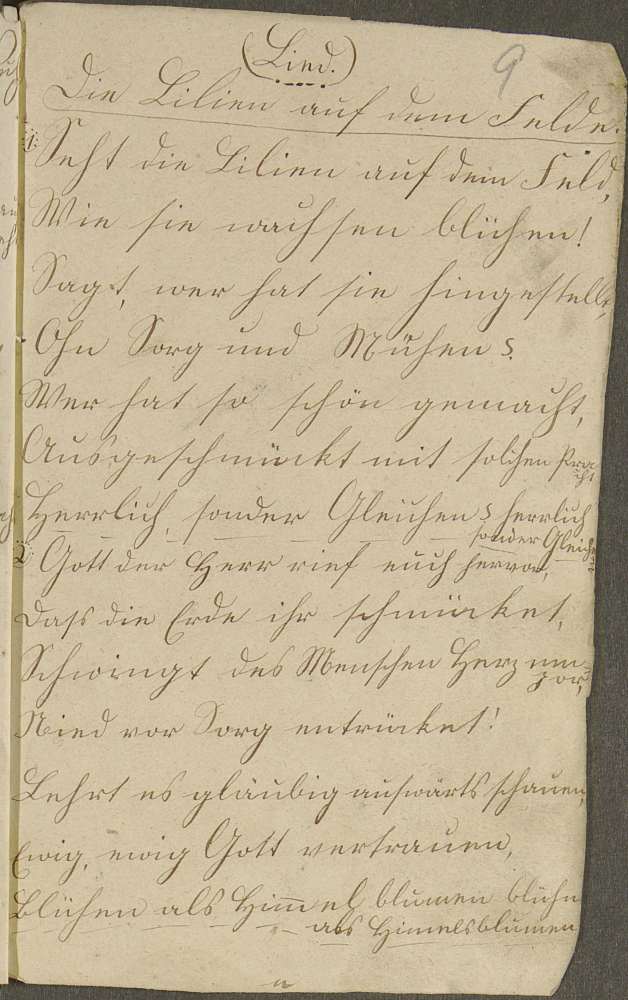 (Lied.)
9
Die Lilien auf dem Felde.
1. Seht die Lilien auf dem Feld,
Wie sie wachsen blühen!
Sagt, wer hat sie hingestellt,
Ohn Sorg und Mühen?
Wer hat so schön gemacht,
Ausgeschmückt mit solchen Pracht
Herrlich, sonder Gleichen? herrlich
sonder Gleichen
2. Gott der Herr rief euch hervor,
Dass die Erde ihr schmücket,
Schwingt des Menschen Herz em=
por,
Nied vor Sorg entrücket!
Lehrt es gläubig aufwärts schauen,
Ewig, ewig Gott vertrauen,
Blühen als Himmelsblumen blühn
als Himelsblumen